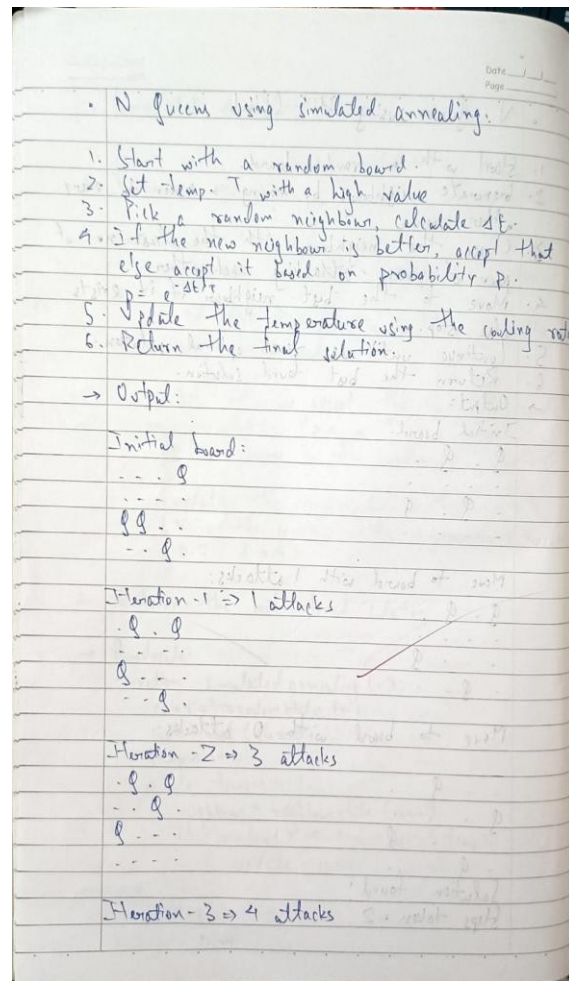 Date
Page
• N Queens using simulated annealing:
1. Start with a random board.
2. Set temp T with a high value
3. Pick a random neighbour, calculate ΔE.
4. If the new neighbour is better, accept that
else accept it based on probability p.
p = e^-ΔE/T
5. Update the temperature using the cooling rate
6. Return the final solution.
→ Output:
Initial board:
- - - Q
- - - -
Q Q - -
- - Q -
Iteration-1 => 1 attacks
- Q - Q
- - - -
Q - - -
- - Q
Iteration-2 => 3 attacks
- Q - Q
- - Q -
Q - - -
- - - -
Iteration-3 => 4 attacks